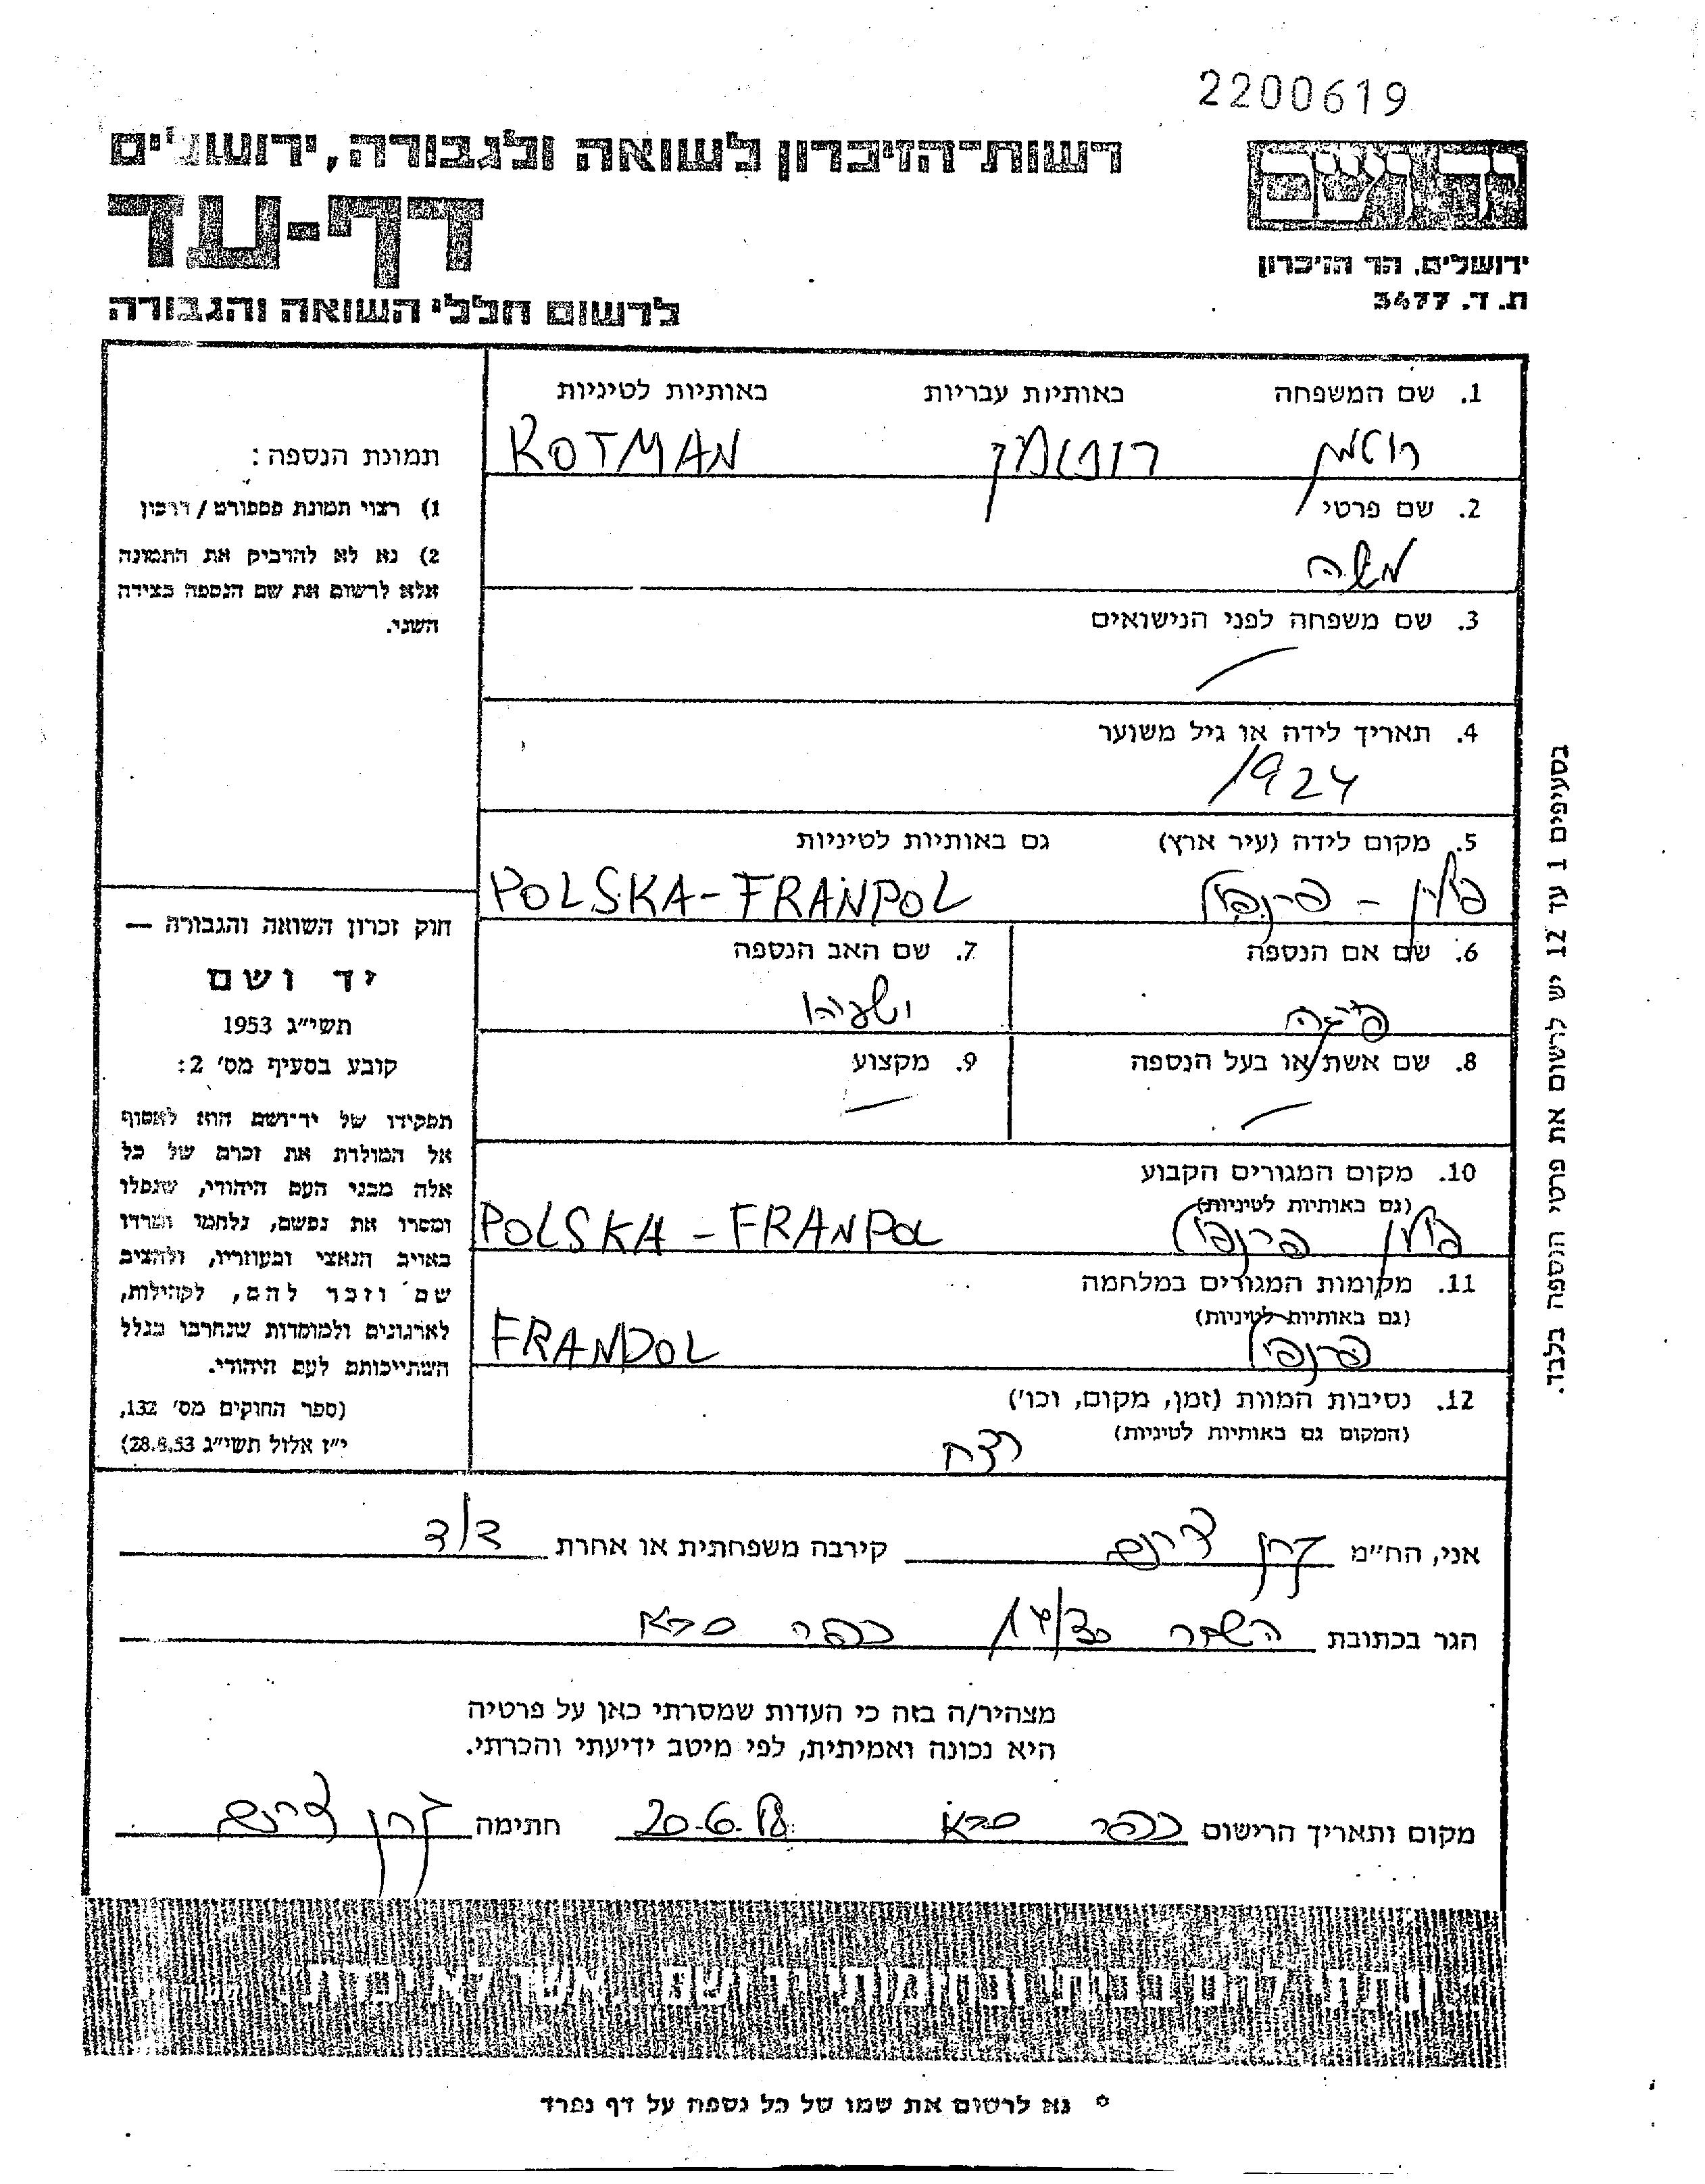 2200619
רשות־הזיכרון לשואה ולגבורה, ירושלים
יד ושם
דף-עד
ירושלים, הר הזיכרון
ת. ד. 3477
לרשום חללי השואה והגבורה
1. שם המשפחה באותיות עבריות באותיות לטיניות
רוטמן רוטמן ROTMAN
2. שם פרטי
משה
3. שם משפחה לפני הנישואים
4. תאריך לידה או גיל משוער
1924
5. מקום לידה (עיר ארץ) גם באותיות לטיניות
פולין - פרנפול POLSKA-FRANPOL
6. שם אם הנספה 7. שם האב הנספה
פייגה ישעיהו
8. שם אשת/או בעל הנספה 9. מקצוע
10. מקום המגורים הקבוע
(גם באותיות לטיניות)
פולין פרנפול POLSKA - FRANPOL
11. מקומות המגורים במלחמה
(גם באותיות לטיניות)
פרנפול FRANPOL
12. נסיבות המוות (זמן, מקום, וכו')
(המקום גם באותיות לטיניות)
רצח
תמונת הנספה:
1) רצוי תמונת פספורט / דרכון
2) נא לא להדביק את התמונה
אלא לרשום את שם הנספה בצידה
השני.
חוק זכרון השואה והגבורה —
יד ושם
תשי"ג 1953
קובע בסעיף מס' 2:
תפקידו של יד־ושם הוא לאסוף
אל המולדת את זכרם של כל
אלה מבני העם היהודי, שנפלו
ומסרו את נפשם, נלחמו ומרדו
באויב הנאצי ובעוזריו, ולהציב
שם וזכר להם, לקהילות,
לארגונים ולמוסדות שנחרבו בגלל
השתייכותם לעם היהודי.
(ספר החוקים מס' 132,
י"ז אלול תשי"ג 28.8.53)
בסעיפים 1 עד 12 יש לרשום את פרטי הנספה בלבד.
אני, הח"מ קירבה משפחתית או אחרת דוד
הגר בכתובת השחר כפר סבא
מצהיר/ה בזה כי העדות שמסרתי כאן על פרטיה
היא נכונה ואמיתית, לפי מיטב ידיעתי והכרתי.
מקום ותאריך הרישום כפר סבא 20.6. חתימה
ונתתי להם בביתי ובחומתי יד ושם אשר לא יכרת
* נא לרשום את שמו של כל נספה על דף נפרד